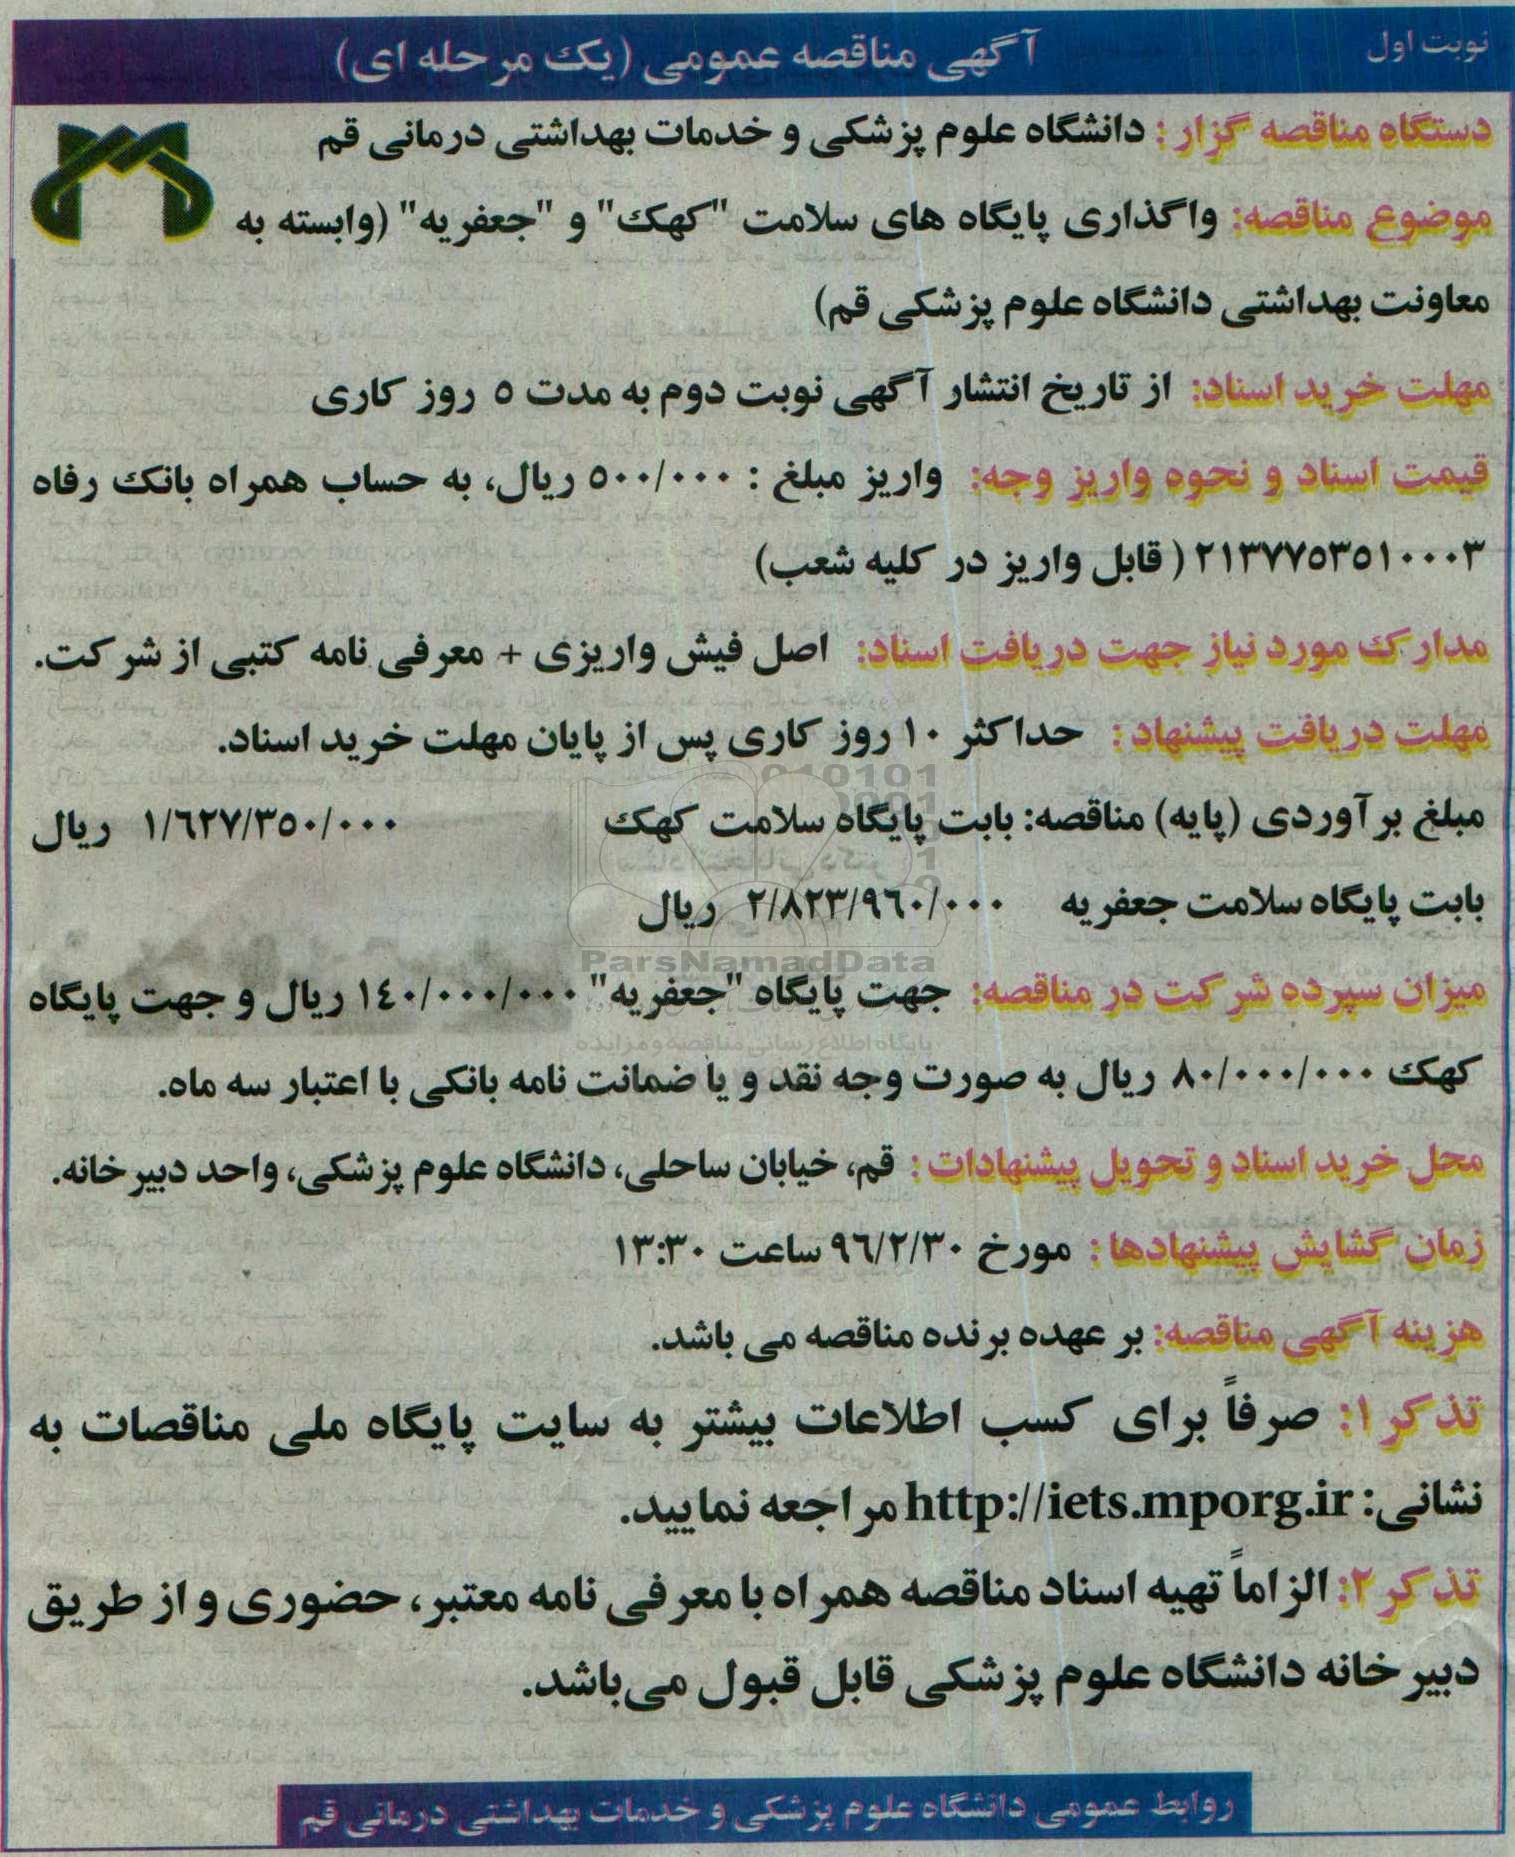 نوبت اول
آگهی مناقصه عمومی (یک مرحله ای)
دستگاه مناقصه گزار : دانشگاه علوم پزشکی و خدمات بهداشتی درمانی قم
موضوع مناقصه: واگذاری پایگاه های سلامت "کهک" و "جعفریه" (وابسته به
معاونت بهداشتی دانشگاه علوم پزشکی قم)
مهلت خرید اسناد: از تاریخ انتشار آگهی نوبت دوم به مدت ٥ روز کاری
قیمت اسناد و نحوه واریز وجه: واریز مبلغ : ٥٠٠/٠٠٠ ریال، به حساب همراه بانک رفاه
٢١٣٧٧٥٣٥١٠٠٠٣ ( قابل واریز در کلیه شعب)
مدارک مورد نیاز جهت دریافت اسناد: اصل فیش واریزی + معرفی نامه کتبی از شرکت.
مهلت دریافت پیشنهاد : حداکثر ١٠ روز کاری پس از پایان مهلت خرید اسناد.
مبلغ برآوردی (پایه) مناقصه: بابت پایگاه سلامت کهک ١/٦٢٧/٣٥٠/٠٠٠ ریال
بابت پایگاه سلامت جعفریه ٢/٨٢٣/٩٦٠/٠٠٠ ریال
ParsNamadData
میزان سپرده شرکت در مناقصه: جهت پایگاه "جعفریه" ١٤٠/٠٠٠/٠٠٠ ریال و جهت پایگاه
پایگاه اطلاع رسانی مناقصه و مزایده
کهک ٨٠/٠٠٠/٠٠٠ ریال به صورت وجه نقد و یا ضمانت نامه بانکی با اعتبار سه ماه.
محل خرید اسناد و تحویل پیشنهادات : قم، خیابان ساحلی، دانشگاه علوم پزشکی، واحد دبیرخانه.
زمان گشایش پیشنهادها : مورخ ٩٦/٢/٣٠ ساعت ١٣:٣٠
هزینه آگهی مناقصه: بر عهده برنده مناقصه می باشد.
تذکر ١: صرفاً برای کسب اطلاعات بیشتر به سایت پایگاه ملی مناقصات به
نشانی: http://iets.mporg.ir مراجعه نمایید.
تذکر ٢: الزاماً تهیه اسناد مناقصه همراه با معرفی نامه معتبر، حضوری و از طریق
دبیرخانه دانشگاه علوم پزشکی قابل قبول می‌باشد.
روابط عمومی دانشگاه علوم پزشکی و خدمات بهداشتی درمانی قم